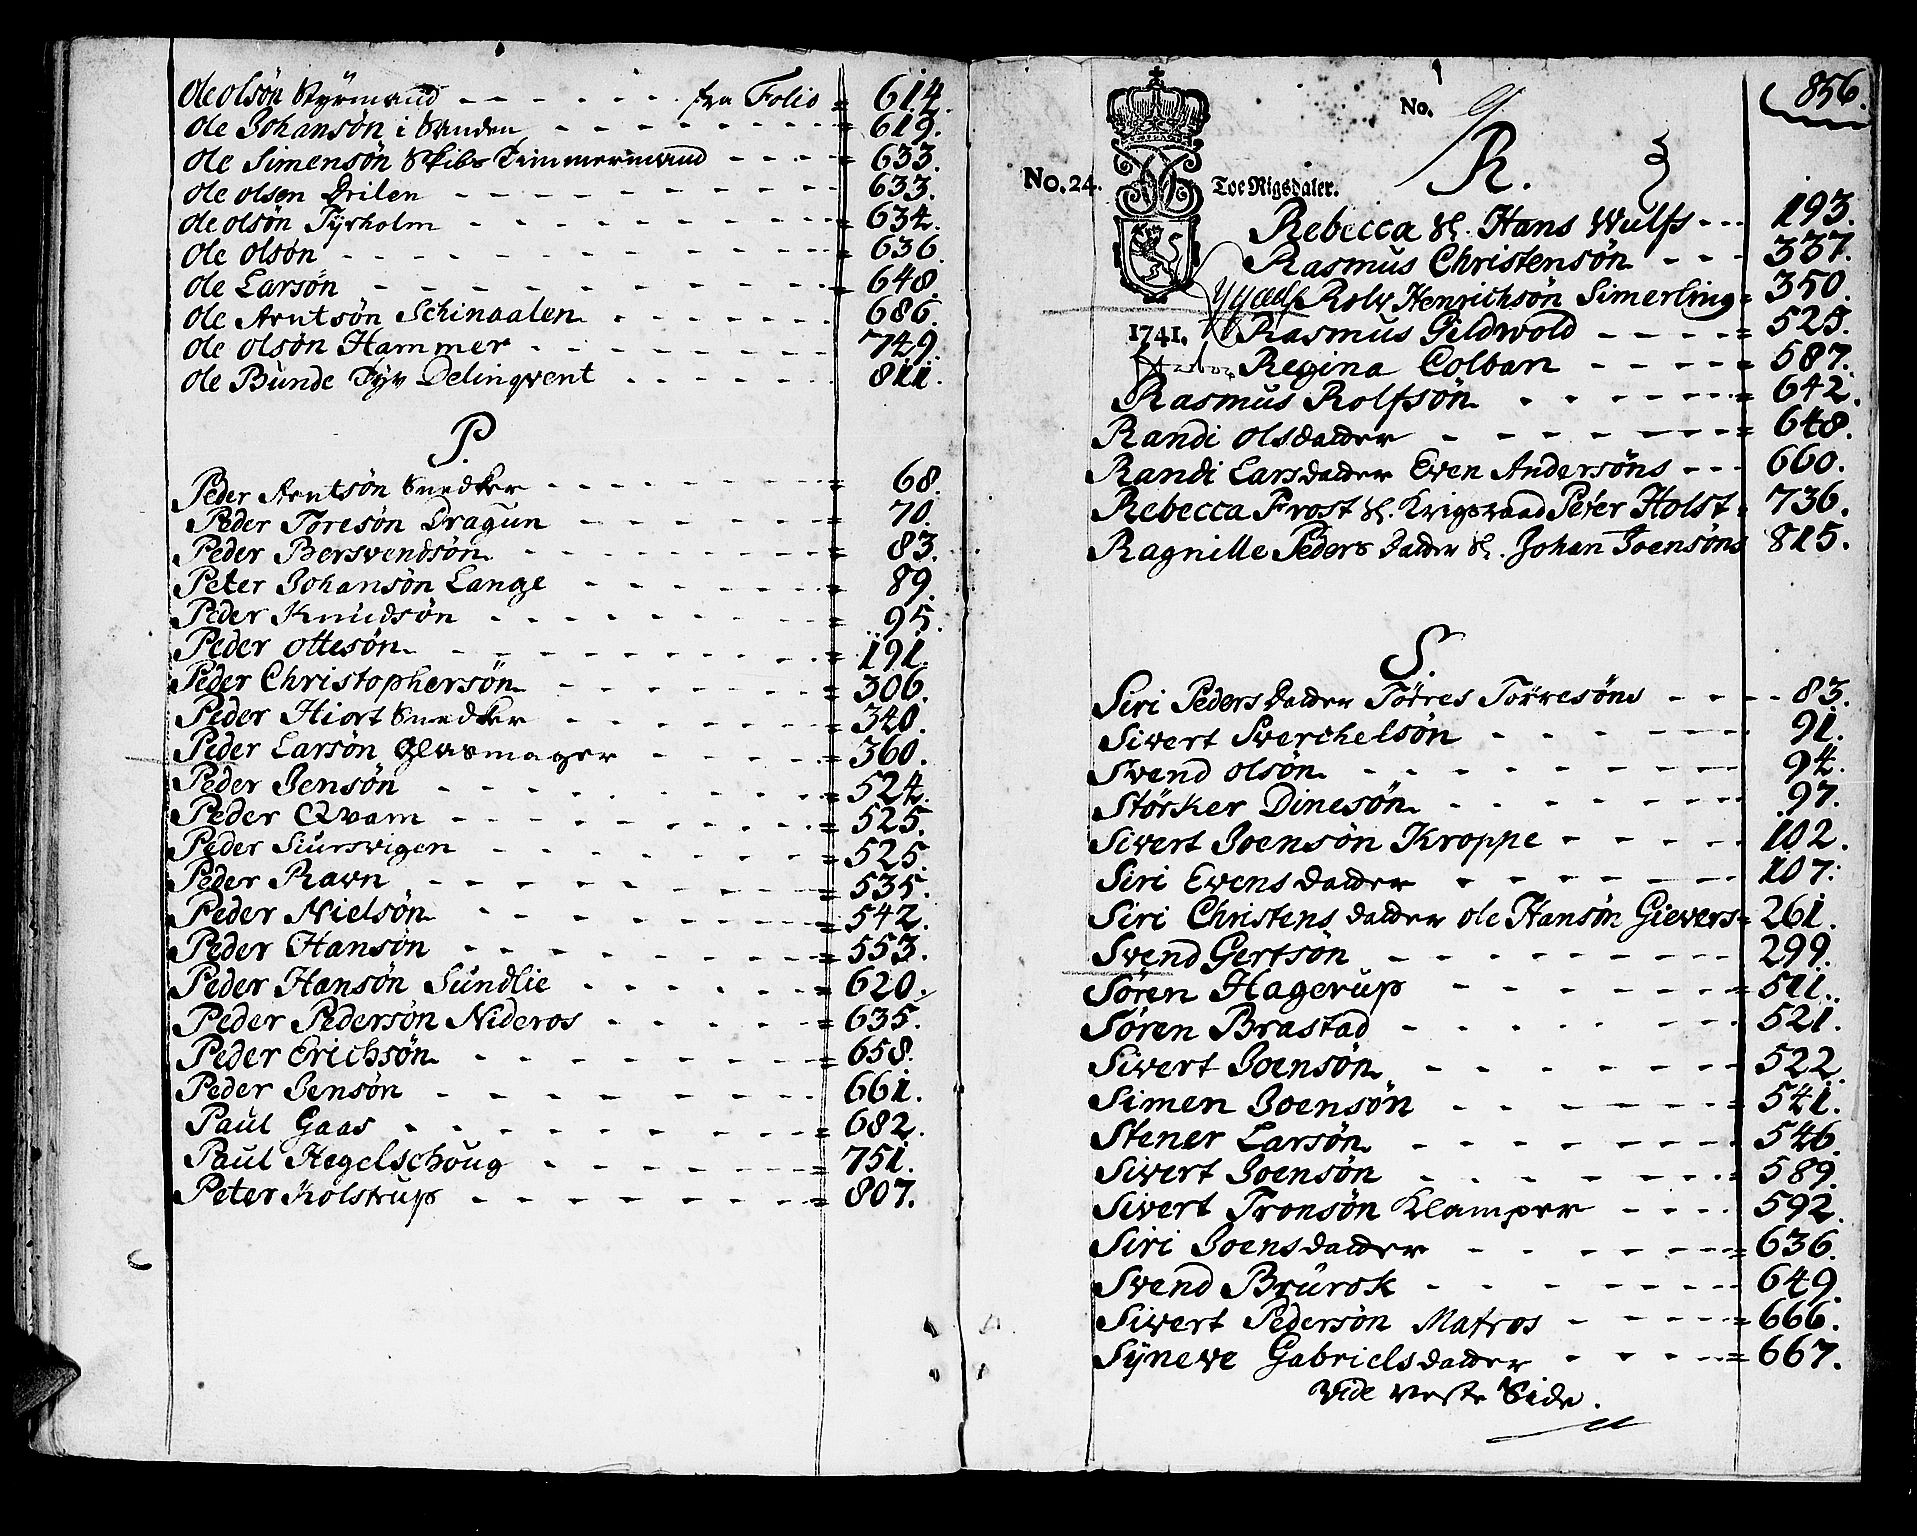 Ole olsön Styrmand - - - - - - fra Folio = 614.
Ole Johansön i Sanden - - - - - - - - 619.
Ole Simensön Skibs Timmermand - - - = 633.
Ole olsen Drilen - - - - - - - - 633.
Ole olsön Tyrholm - - - - - - - = 634.
Ole olsön - - - - - - - - - 636.
Ole Larsön - - - - - - - - = 648.
Ole Arntsön Schinaalen - - - - - 686.
Ole olsön Hammer - - - - - - - 749.
Ole Bunde Tyv Delinqvent - - - - - 811.
P.
Peder Arntsön Snedker - - - - - - = 68.
Peder Toresön Dragun - - - - - = 70.
Peder Bersvendsön - - - - - - = 83.
Peter Johansön Lange - - - - - = 89.
Peder Knudsön - - - - - - - = 95.
Peder ottesön - - - - - - - = 191.
Peder Christophersön - - - - - = 306.
Peder Hiort Snedker - - - - - = 340.
Peder Larsön Glasmager - - - - = 360.
Peder Jensön - - - - - - - = 524.
Peder Qvam - - - - - - - = 525.
Peder Siursvigen - - - - - - = 525.
Peder Ravn - - - - - - - = 535.
Peder Nielsön - - - - - - - = 542.
Peder Hansön - - - - - - - = 553.
Peder Hansön Sundlie - - - - - = 620.
Peder Pedersön Nideros - - - - - = 635.
Peder Erichsön - - - - - - - = 658.
Peder Jensön - - - - - - - 661.
Paul Gaas - - - - - - - - = 682.
Paul Hegelschoug - - - - - - = 751.
Peter Kolstrup - - - - - - - = 807.
856.
No. 9
No. 24.
Toe Rigsdaler.
1741.
R.
Rebecca Sl. Hans Wulfs - - - 193.
Rasmus Christensön - - - 337.
Rolv Henrichsön Simerling = 350.
Rasmus Gildwold - - - - = 525.
Regina Colban - - - - - = 587.
Rasmus Rolfsön - - - - - - = 642.
Randi olsdatter - - - - - - = 648.
Randi Larsdatter Even Andersöns - - - 660.
Rebecca Frost Sl. Krigsraad Peter Holst = 736.
Ragnille Peders datter Sl. Johan Joensöns 815.
S.
Siri Pedersdatter Törres Törresöns - - - - 83.
Sivert Sverchelsön - - - - - - 91.
Svend olsön - - - - - - - - 94.
Störker Dinesön - - - - - - - 97.
Sivert Joensön Kroppe - - - - - 102.
Siri Evensdatter - - - - - - - 107.
Siri Christensdatter ole Hansön Gievers = 261.
Svend Gertsön - - - - - - - - 299.
Sören Hagerup - - - - - - - = 511.
Sören Brastad - - - - - - - 521.
Sivert Joensön - - - - - - - 522.
Simen Joensön - - - - - - = 541.
Stener Larsön - - - - - - - 546.
Sivert Joensön - - - - - - - = 589.
Sivert Tronsön Klamper - - - - 592.
Siri Joensdatter - - - - - - = 636.
Svend Brurok - - - - - - - 649.
Sivert Pedersön Matros - - - - = 666.
Syneve Gabrielsdatter - - - - = 667.
Vide neste Side.